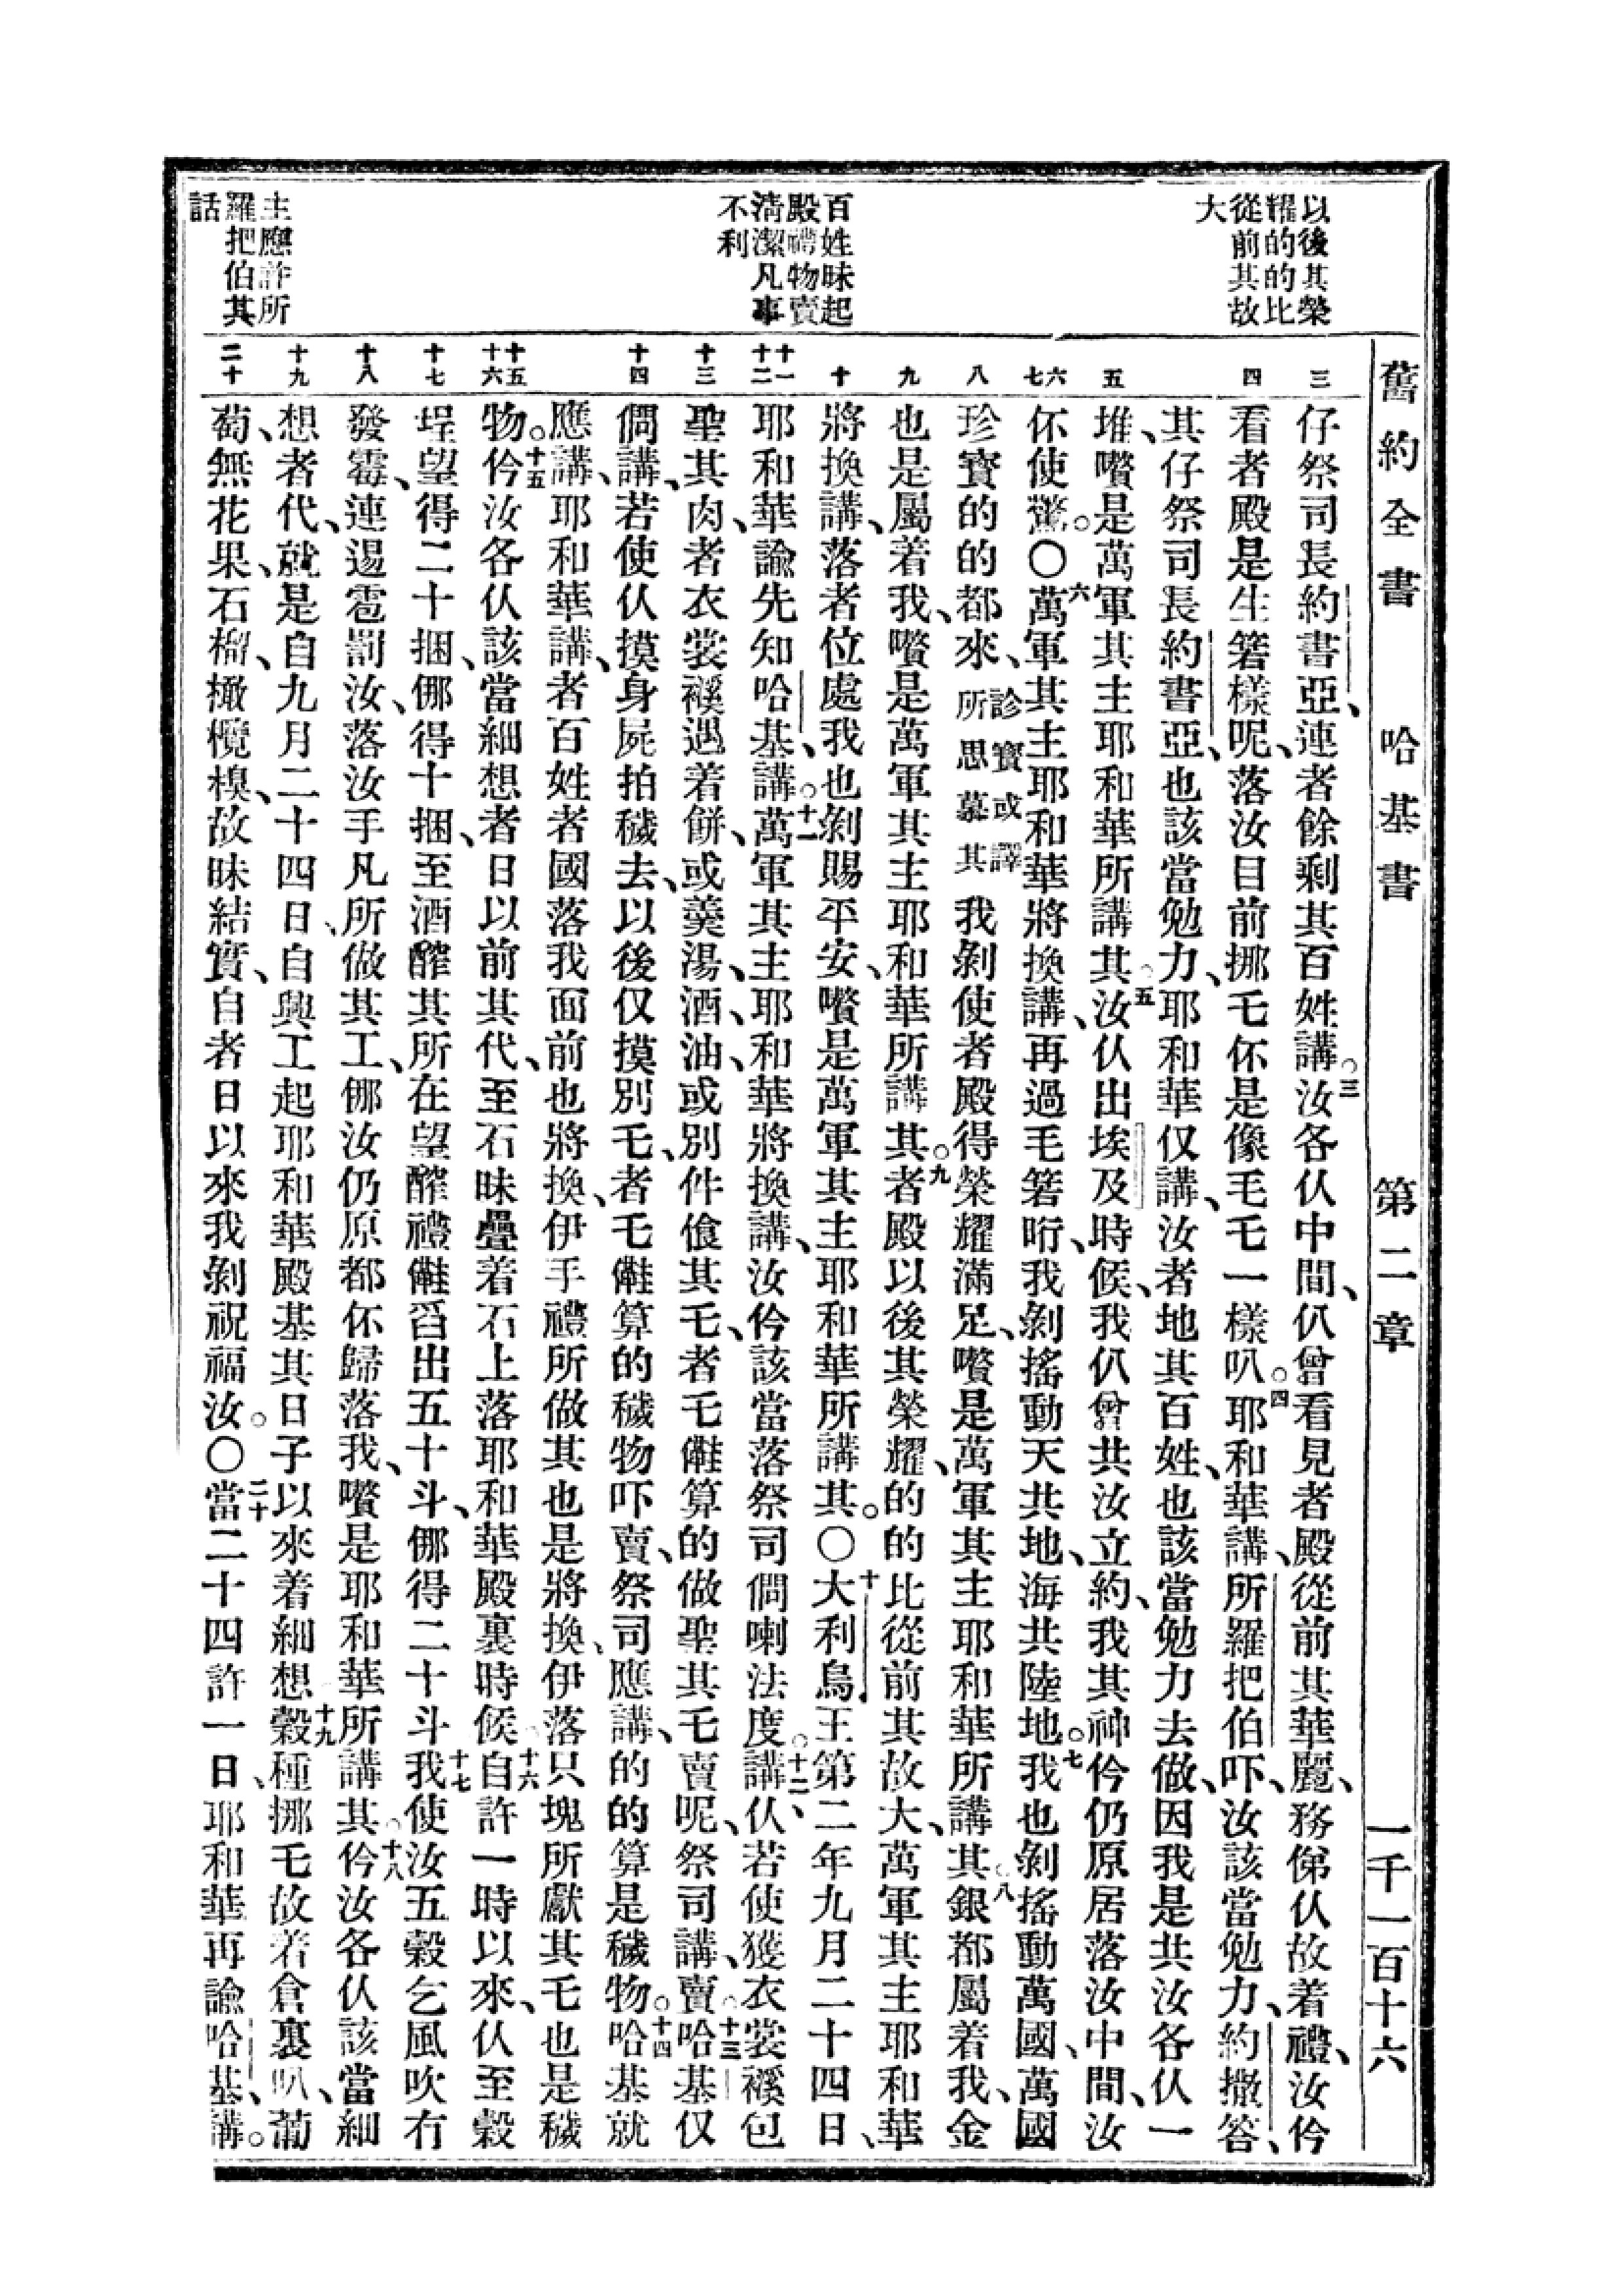 舊約全書 哈基書 第二章 一千一百十六
以後其榮
耀的的比
從前其故
大
百姓昧起
殿禮物賣
清潔凡事
不利
主應許所
羅把伯其
話
三 四 五 六 七 八 九 十 十一 十二 十三 十四 十五 十六 十七 十八 十九 二十
仔祭司長約書亞、連者餘剩其百姓講。三汝各仈中間、仈曾看見者殿從前其華麗、務俤仈故着禮、汝仱
看者殿是生箬樣呢、落汝目前挪乇伓是像乇乇一樣叭。四耶和華講、所羅把伯吓、汝該當勉力、約撒答、
其仔祭司長約書亞、也該當勉力、耶和華仅講、汝者地其百姓、也該當勉力去做、因我是共汝各仈一
堆、囋是萬軍其主耶和華所講其。五汝仈出埃及時候、我仈曾共汝立約、我其神仱仍原居落汝中間、汝
伓使驚。〇六萬軍其主耶和華將換講、再過毛箬䀪、我剝搖動天共地、海共陸地。七我也剝搖動萬國、萬國
珍寶的的都來、診寶或譯所思慕其我剝使者殿得榮耀滿足、囋是萬軍其主耶和華所講其。八銀都屬着我、金
也是屬着我、囋是萬軍其主耶和華所講其。九者殿以後其榮耀、的的比從前其故大、萬軍其主耶和華
將換講、落者位處我也剝賜平安、囋是萬軍其主耶和華所講其。〇十大利烏王第二年九月二十四日、
耶和華諭先知哈基、講。十一萬軍其主、耶和華將換講、汝仱該當落祭司𠆧喇法度。講十二、仈若使獲衣裳䙎包
聖其肉、者衣裳䙎遇着餅、或羹湯、酒、油、或別件飡其乇、者乇㒕算的做聖其乇賣呢、祭司講、賣。十三哈基仅
𠆧講、若使仈摸身屍拍穢去、以後仅摸別乇、者乇㒕算的穢物吓賣、祭司應講、的的算是穢物。十四哈基就
應講、耶和華講、者百姓者國落我面前也將換、伊手禮所做其也是將換、伊落只塊所獻其乇也是穢
物。十五仱汝各仈該當細想者日以前其代、至石昧疊着石上落耶和華殿裏時候。十六自許一時以來、仈至穀
埕、望得二十捆、㑚得十捆、至酒醡其所在望醡禮㒕舀出五十斗、㑚得二十斗十七我使汝五穀乞風吹冇
發霉、連逿雹罰汝、落汝手凡所做其工、㑚汝仍原都伓歸落我、囋是耶和華所講其。十八仱汝各仈該當細
想者代、就是自九月二十四日、自興工起耶和華殿基其日子以來着細想十九穀種挪乇故若倉裏叭、葡
萄、無花果、石榴、橄欖模、故昧結實、自者日以來我剝祝福汝。〇二十當二十四許一日、耶和華再諭哈基、講。